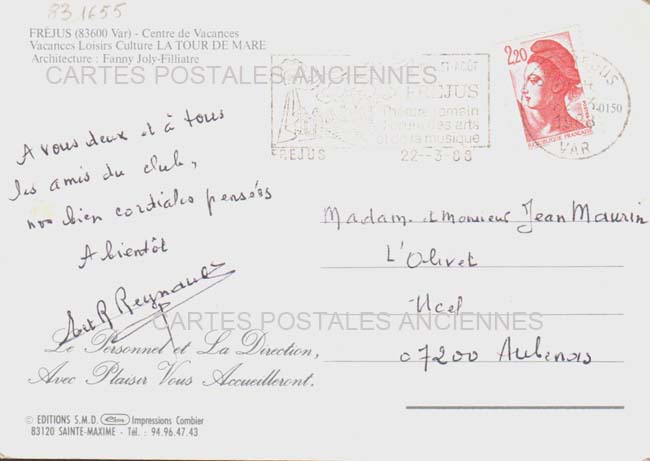 83 1655
FRÉJUS (83600 Var) - Centre de Vacances
Vacances Loisirs Culture LA TOUR DE MARE
Architecture : Fanny Joly-Filliatre
CARTES POSTALES ANCIENNES
ET AOÛT
FRÉJUS
Théâtre romain
des arts
et de la musique
FREJUS 22--3-88
2,20
REPUBLIQUE FRANÇAISE
VAR
A vous deux et à tous
les amis du club,
nos bien cordiales pensées
A bientôt
R Reynaud
Madame et Monsieur Jean Maurin
L'Olivet
Ucel
07200 Aubenas
CARTES POSTALES ANCIENNES
Le Personnel et La Direction,
Avec Plaisir Vous Accueilleront.
© EDITIONS S.M.D. Impressions Combier
83120 SAINTE-MAXIME - Tél. : 94.96.47.43